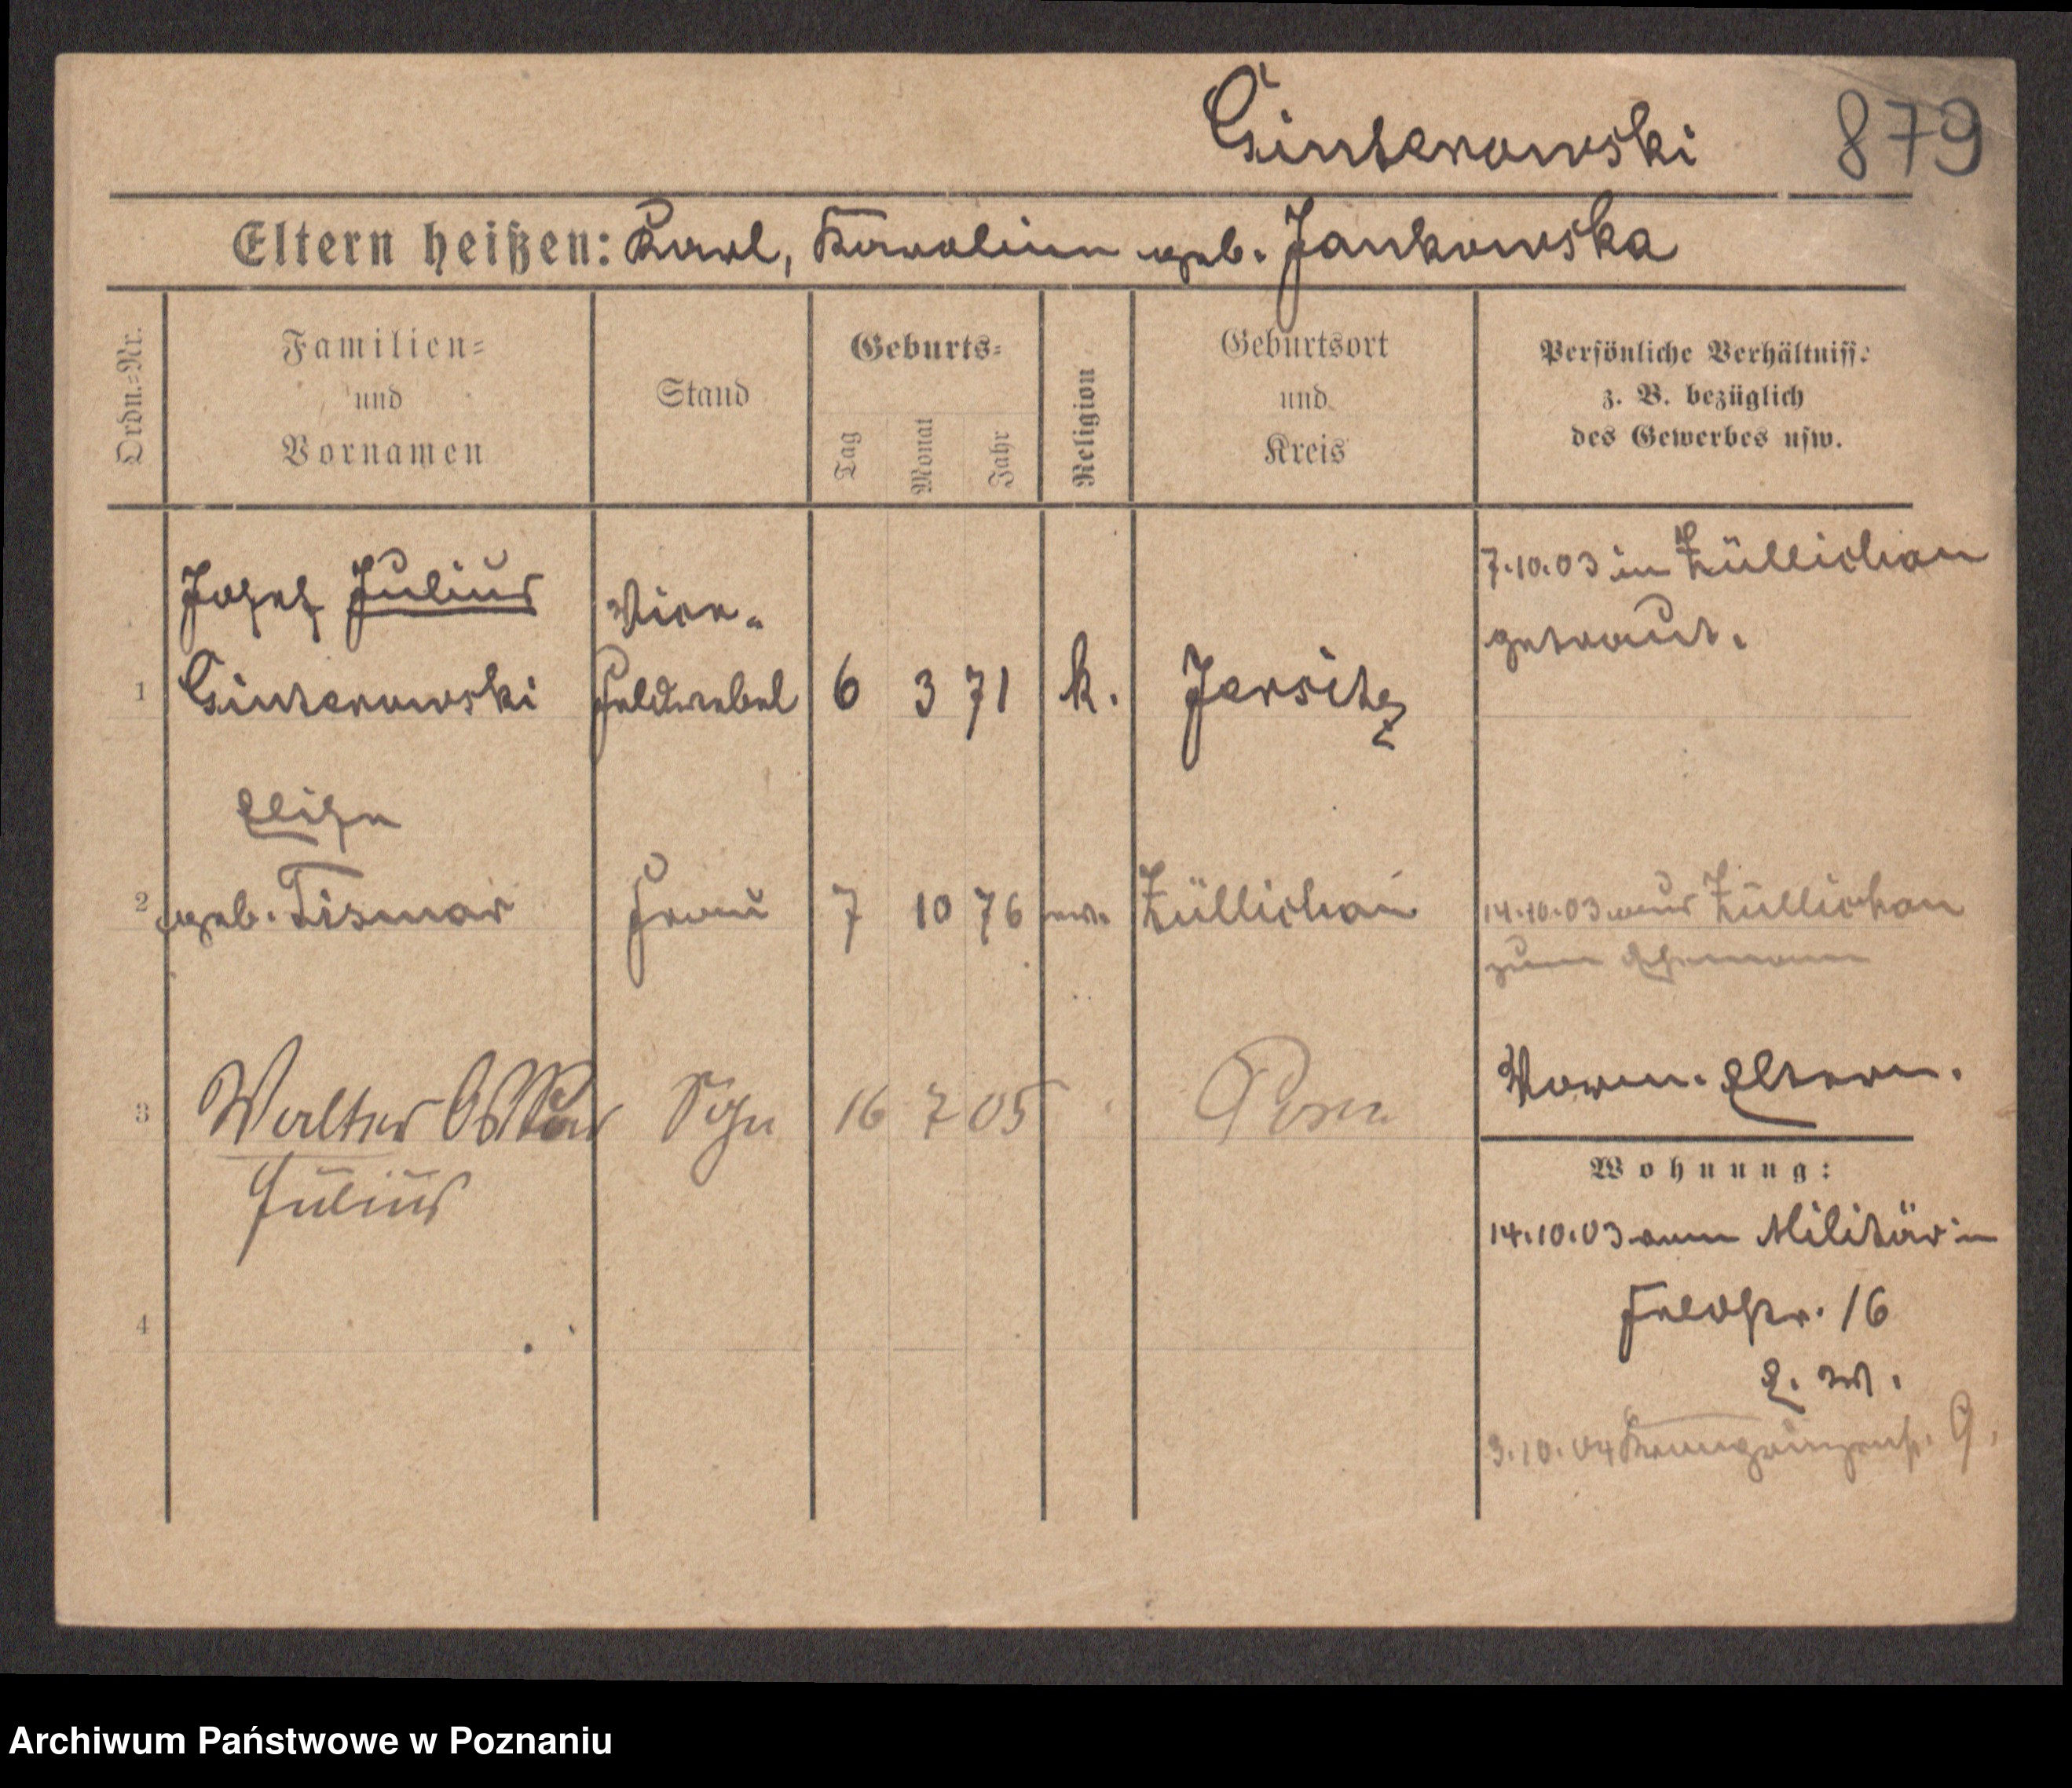 Ginterowski 879
Eltern heißen: Karl, Karoline geb. Jankowska
Ordn.=Nr.
Familien=
und
Vornamen
Stand
Geburts=
Tag Monat Jahr
Religion
Geburtsort
und
Kreis
Persönliche Verhältnisse
z. B. bezüglich
des Gewerbes usw.
Josef Julius
1 Ginterowski
Vice-
Feldwebel 6 3 71 k. Jersitz
7.10.03 in Züllichau
getraut.
Elise
2 geb. Tismar Frau 7 10 76 ev. Züllichau
14.10.03 aus Züllichau
zum Ehemann
3 Walter Oskar Sohn 16 7 05 Posen
Julius
Vorm. Eltern.
Wohnung:
14.10.03 vom Militär in
Feldstr. 16
E. W.
3.10.04 Kronprinzenstr. 9.
4
Archiwum Państwowe w Poznaniu